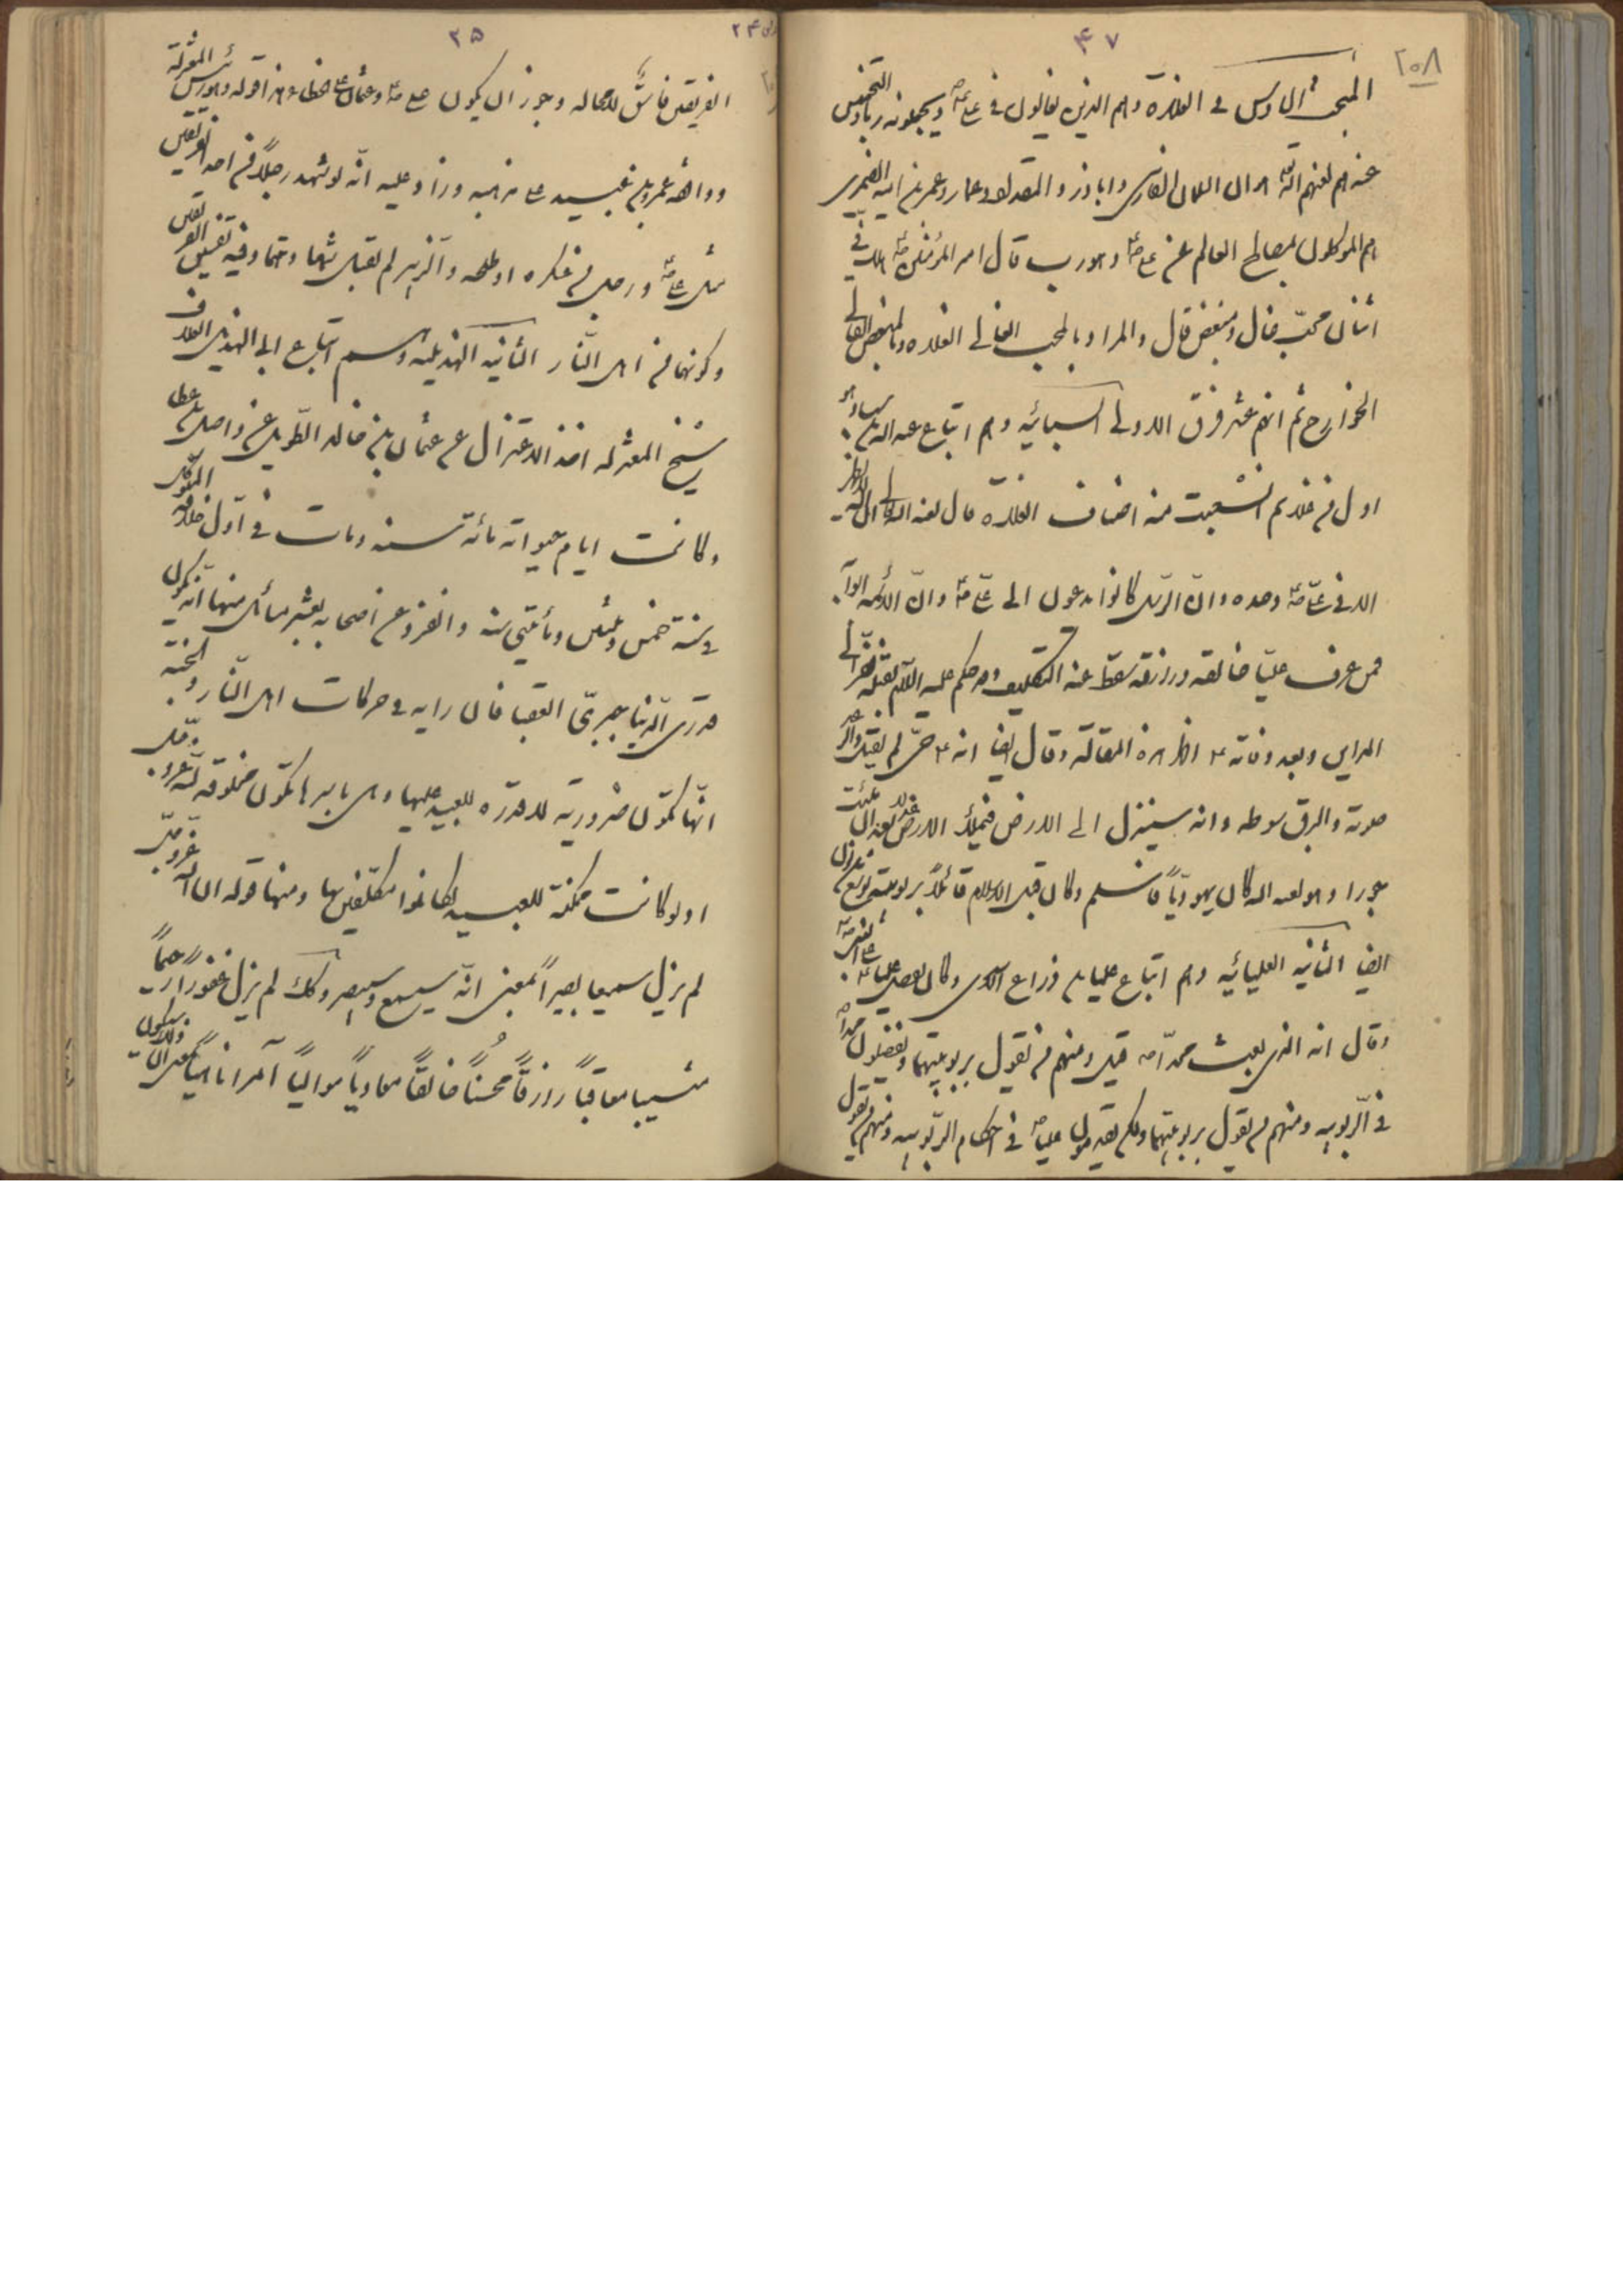 ٢٠٨
٤٧
المبحث السادس فى الغلاة وهم الذين يغالون فى على ع ويجعونه ربا والتخميس
عندهم لعنهم الله ان سلمان الفارسى واباذر والمقداد وعمار وعمر بن اميه الضمرى
هم الموكلون بمصالح العالم عن على ع وهو رب قال امير المؤمنين ع هلك فى
اثنان محبّ غال ومبغض قال والمراد بالمحب الغالى الغلاه وبالمبغض القالى
الخوارج ثم انهم عشر فرق الاولى السبائيه وهم اتباع عبد الله بن سبا وهو
اول من غلا ثم انشعبت منه اصناف الغلاة قال لعنه الله
الا فى على ع وحده وانّ الرسل كانوا يدعون الى على ع وانّ الائمه ابوابه
فمن عرف عليّا خالقه ورازقه سقط عنه التكليف
المداين وبعد وفاته ع اظهر هذه المقالة وقال ايضا انه ع حىّ لم يقتل والرعد
صوته والبرق سوطه وانه سينزل الى الارض فيملأ الارض عدلا
جورا وهو لعنه الله كان يهوديّاً فاسلم وكان قبل الاسلام قائلاً بربوبيّة يوشع بن نون
ايضا الثانيه العليائيه وهم اتباع عليا بن ذراع الاسدى وكان يفضل عليا ع
وقال انه الذى بعث محمداً ص قيل ومنهم من يقول بربوبيتهما ويفضلون محمداً
فى الربوبيه ومنهم من يقول بربوبيتهما ولكن يقدمون عليا ع فى احكام الربوبيه ومنهم من يقول
٢٥
الفريقين فاسقٌ لا محاله وجوز ان يكون على ع وعثمان على خطاء وهذا قوله وهو رئيس المعتزلة
ووافقه عمرو بن عبيد على مذهبه وزاد عليه انّه لو شهد رجلاً من احد الفريقين
مثل على ع ورجل من عسكره او طلحه والزبير لم تقبل شهادتهما وفيه تفسيق الفريقين
وكونهما من اهل النّار الثانيه الهذيليه وهم اتباع ابى الهذيل العلاف
شيخ المعتزله اخذ الاعتزال عن عثمان بن خالد الطّويل عن واصل بن عطا
وكانت ايام حيواته مائة سنه ومات فى اوّل خلافة المتوكّل
فى سنة خمس وثلثين ومأتين سنه وانفرد عن اصحابه بعشر مسائل منها انّه يكون
قدرىّ الدّنيا جبرىّ العقبا فان رايه فى حركات اهل النّار والجنّه
انّها تكون ضروريّه لا قدرة للعبيد عليها وهى باسرها تكون مخلوقه لله عزّ وجلّ
اذ لو كانت مكتنة للعبيد لكانوا مكلّفين بها ومنها قوله ان الله عزّ وجلّ
لم يزل سميعا بصيراً بمعنى انّه سيسمع وسيبصر وكذلك لم يزل غفوراً رحيماً
مثيبا معاقباً رازقاً محسناً خالقاً معادياً موالياً آمرا ناهياً بمعنى انّ ذلك سيكون